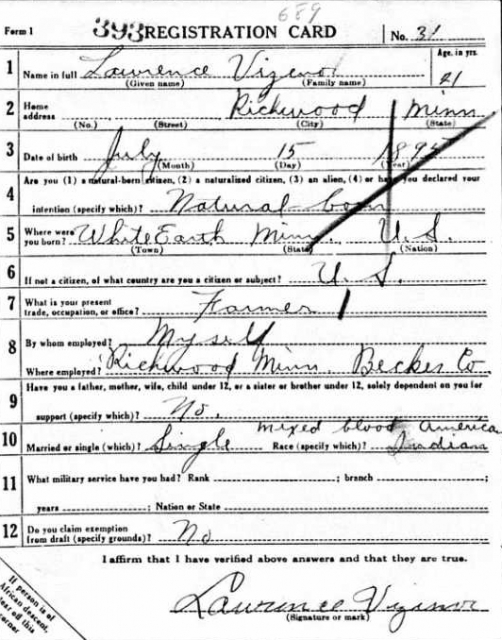 689
Form 1 393 REGISTRATION CARD No. 31
1 Name in full Lawrence Vizenor Age, in yrs. 21
(Given name) (Family name)
2 Home address Richwood Minn
(No.) (Street) (City) (State)
3 Date of birth July 15
(Month) (Day) (Year)
4 Are you (1) a natural-born citizen, (2) a naturalized citizen, (3) an alien, (4) or have you declared your
intention (specify which)? Natural born
5 Where were you born? White Earth Minn. U. S.
(Town) (State) (Nation)
6 If not a citizen, of what country are you a citizen or subject? U. S.
7 What is your present trade, occupation, or office? Farmer
8 By whom employed? Myself
Where employed? Richwood Minn. Becker Co.
9 Have you a father, mother, wife, child under 12, or a sister or brother under 12, solely dependent on you for
support (specify which)? No.
mixed blood America
10 Married or single (which)? Single Race (specify which)? Indian
11 What military service have you had? Rank ; branch ;
years ; Nation or State
12 Do you claim exemption from draft (specify grounds)? No
I affirm that I have verified above answers and that they are true.
Lawrence Vizenor
(Signature or mark)
If person is of
African descent,
tear off this
corner